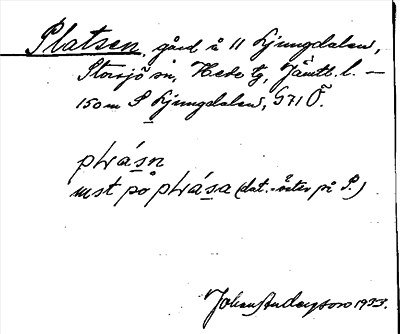 Platsen, gård å 11 Ljungdalen,
Storsjö sn, Hede tg, Jämtl. l. —
150 m S Ljungdalen, 571 Ö.
plásn
på plása (dat. på P.)
Johan Anderson 1933.